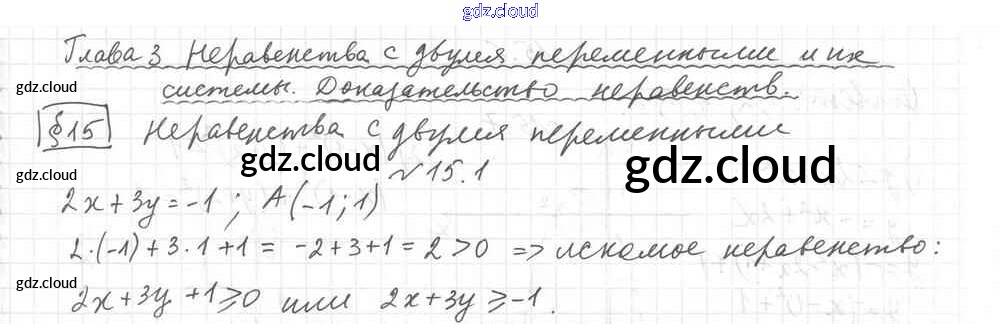 gdz.cloud
Глава 3 Неравенства с двумя переменными и их
системы. Доказательство неравенств.
gdz.cloud
§15 Неравенства с двумя переменными
gdz.cloud
gdz.cloud
gdz.cloud
№15.1
2x+3y=-1; A(-1;1)
gdz.cloud
2·(-1)+3·1+1= -2+3+1=2>0 => искомое неравенство:
gdz.cloud
2x+3y+1≥0 или 2x+3y≥-1.